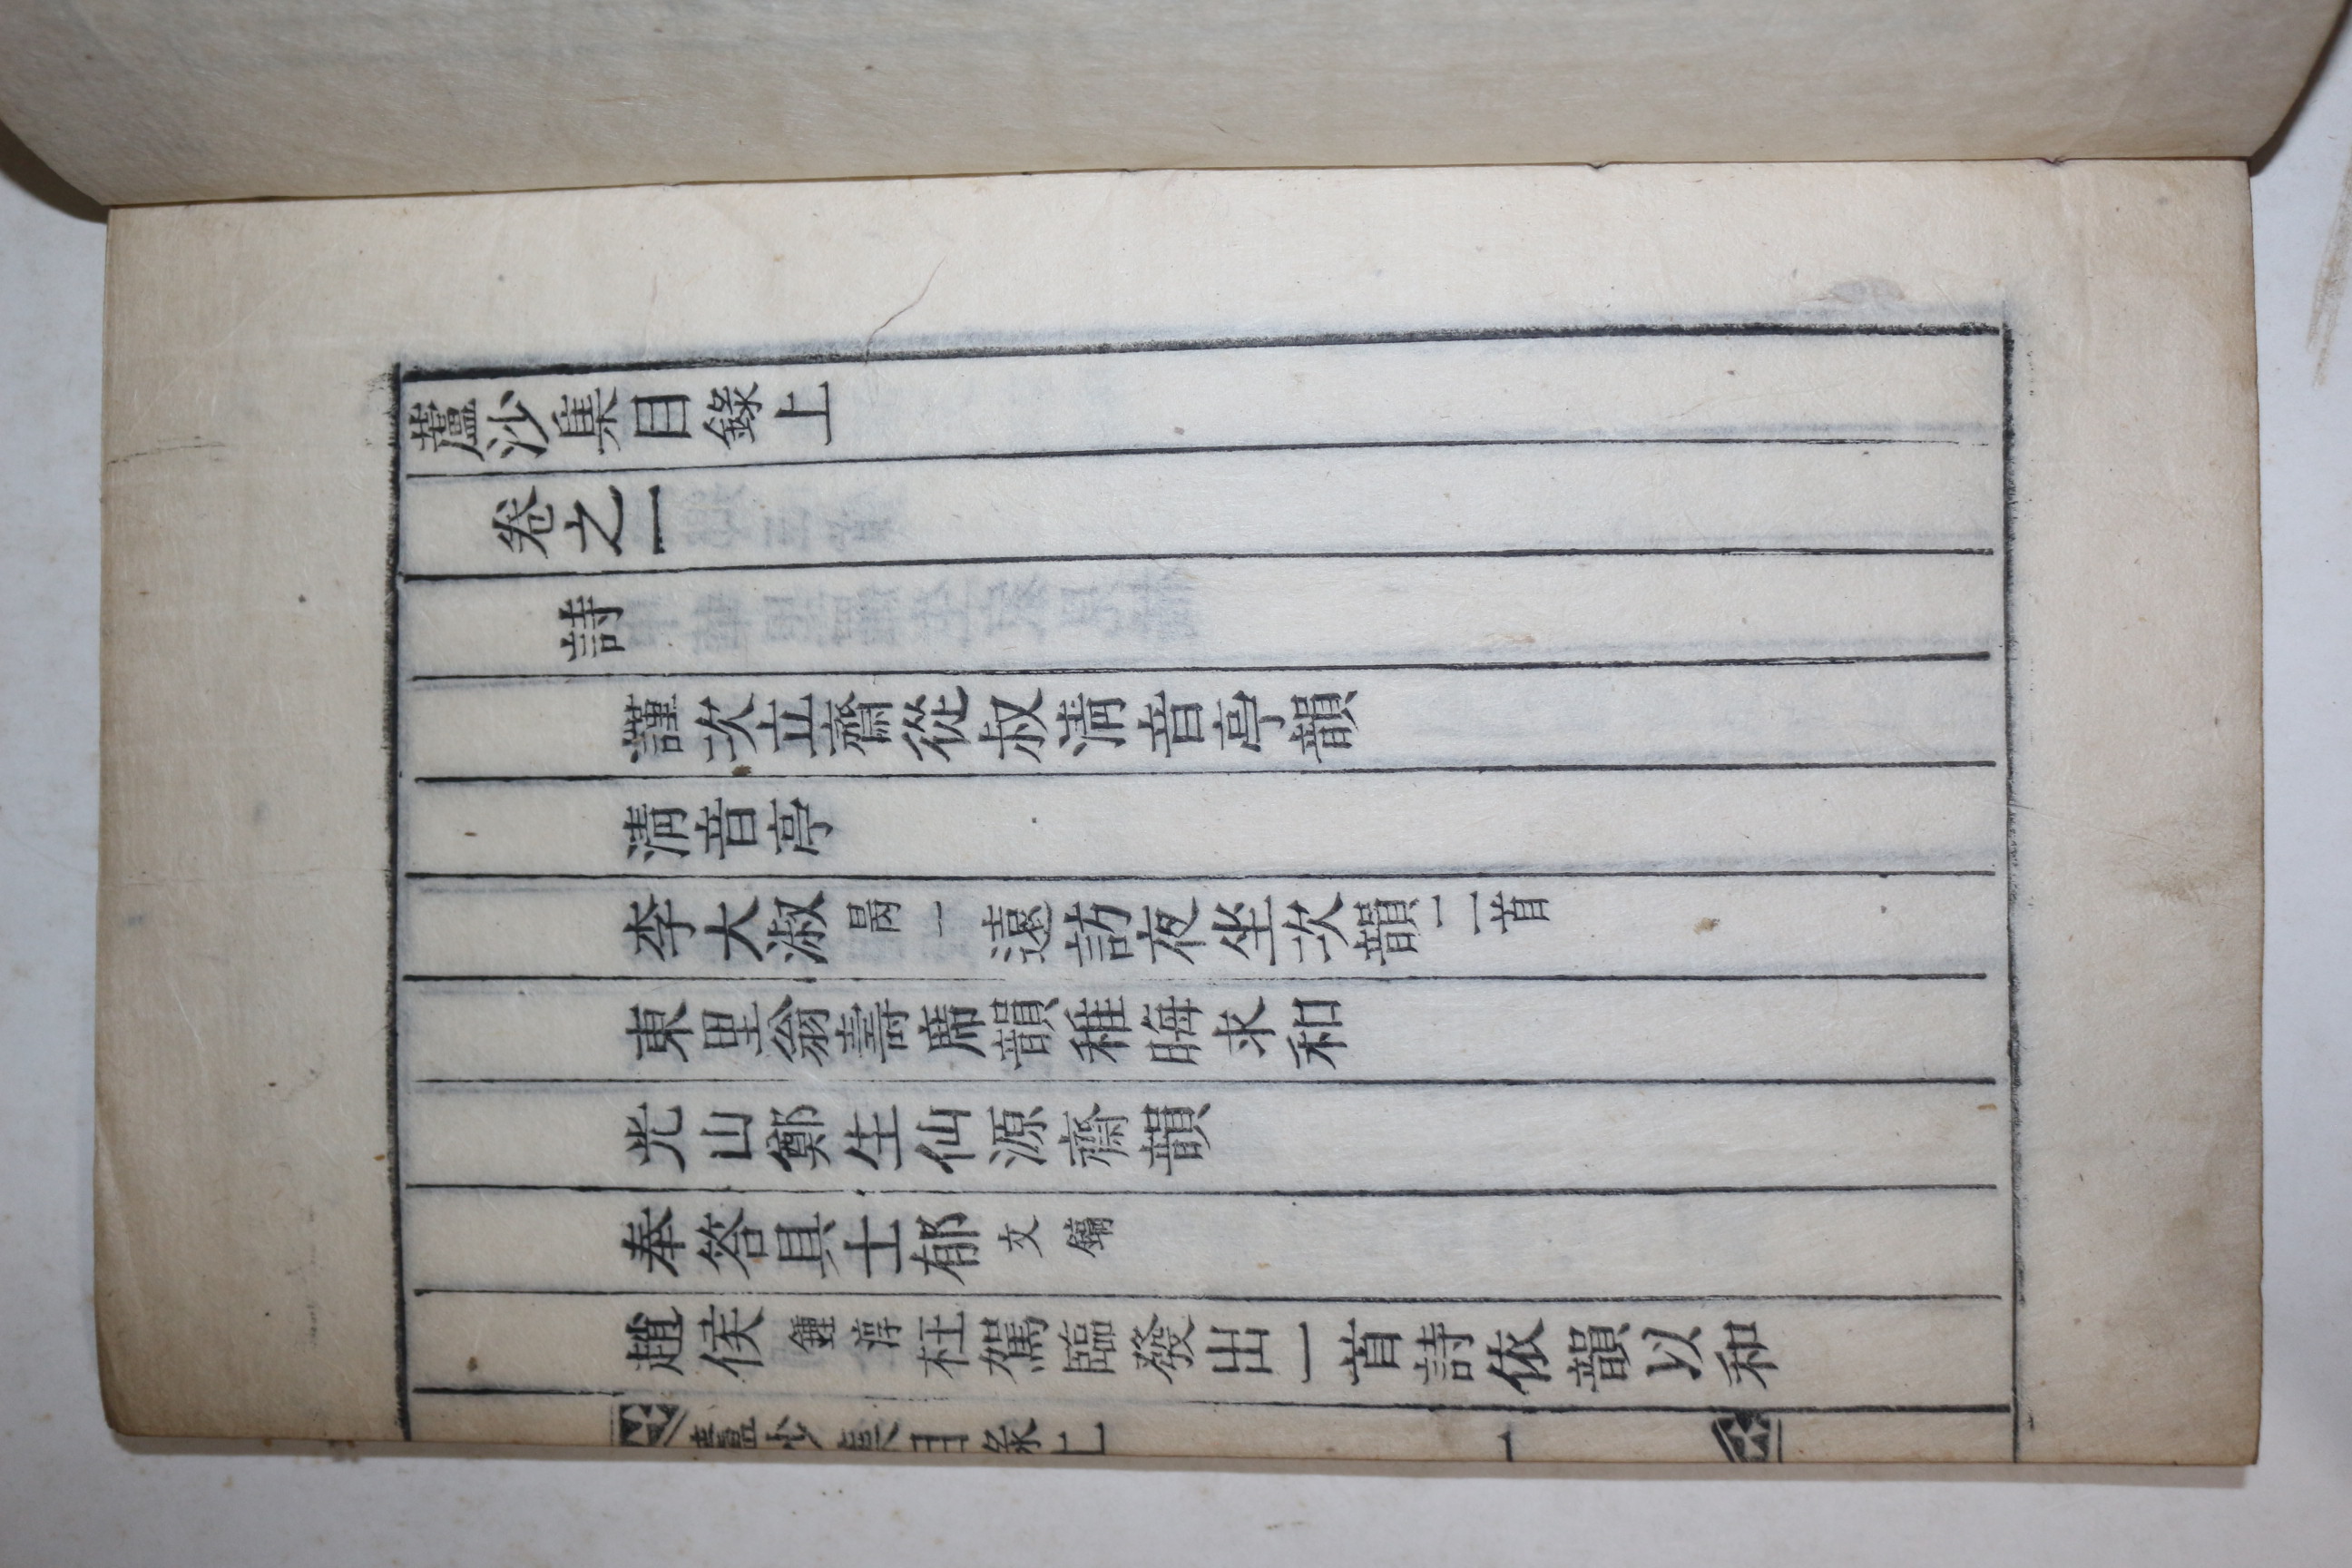 蘆沙集目錄上
卷之一
詩
謹次立齋從叔淸音亭韻
淸音亭
李大淑最一遠訪夜坐次韻二首
東里翁壽席韻稚晦求和
光山鄭生仙源齋韻
奉答具士郁文鎬
趙侯鍾淳枉駕臨發出一首詩依韻以和
蘆沙集目錄上 一